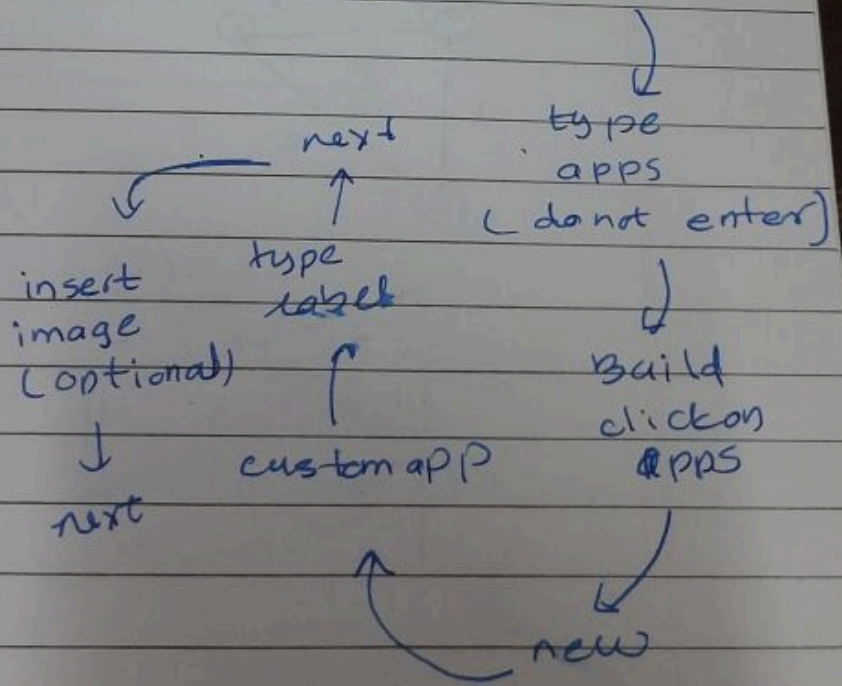 type
apps
(do not enter)
Build
click on
apps
new
custom app
type
label
next
insert
image
(optional)
next